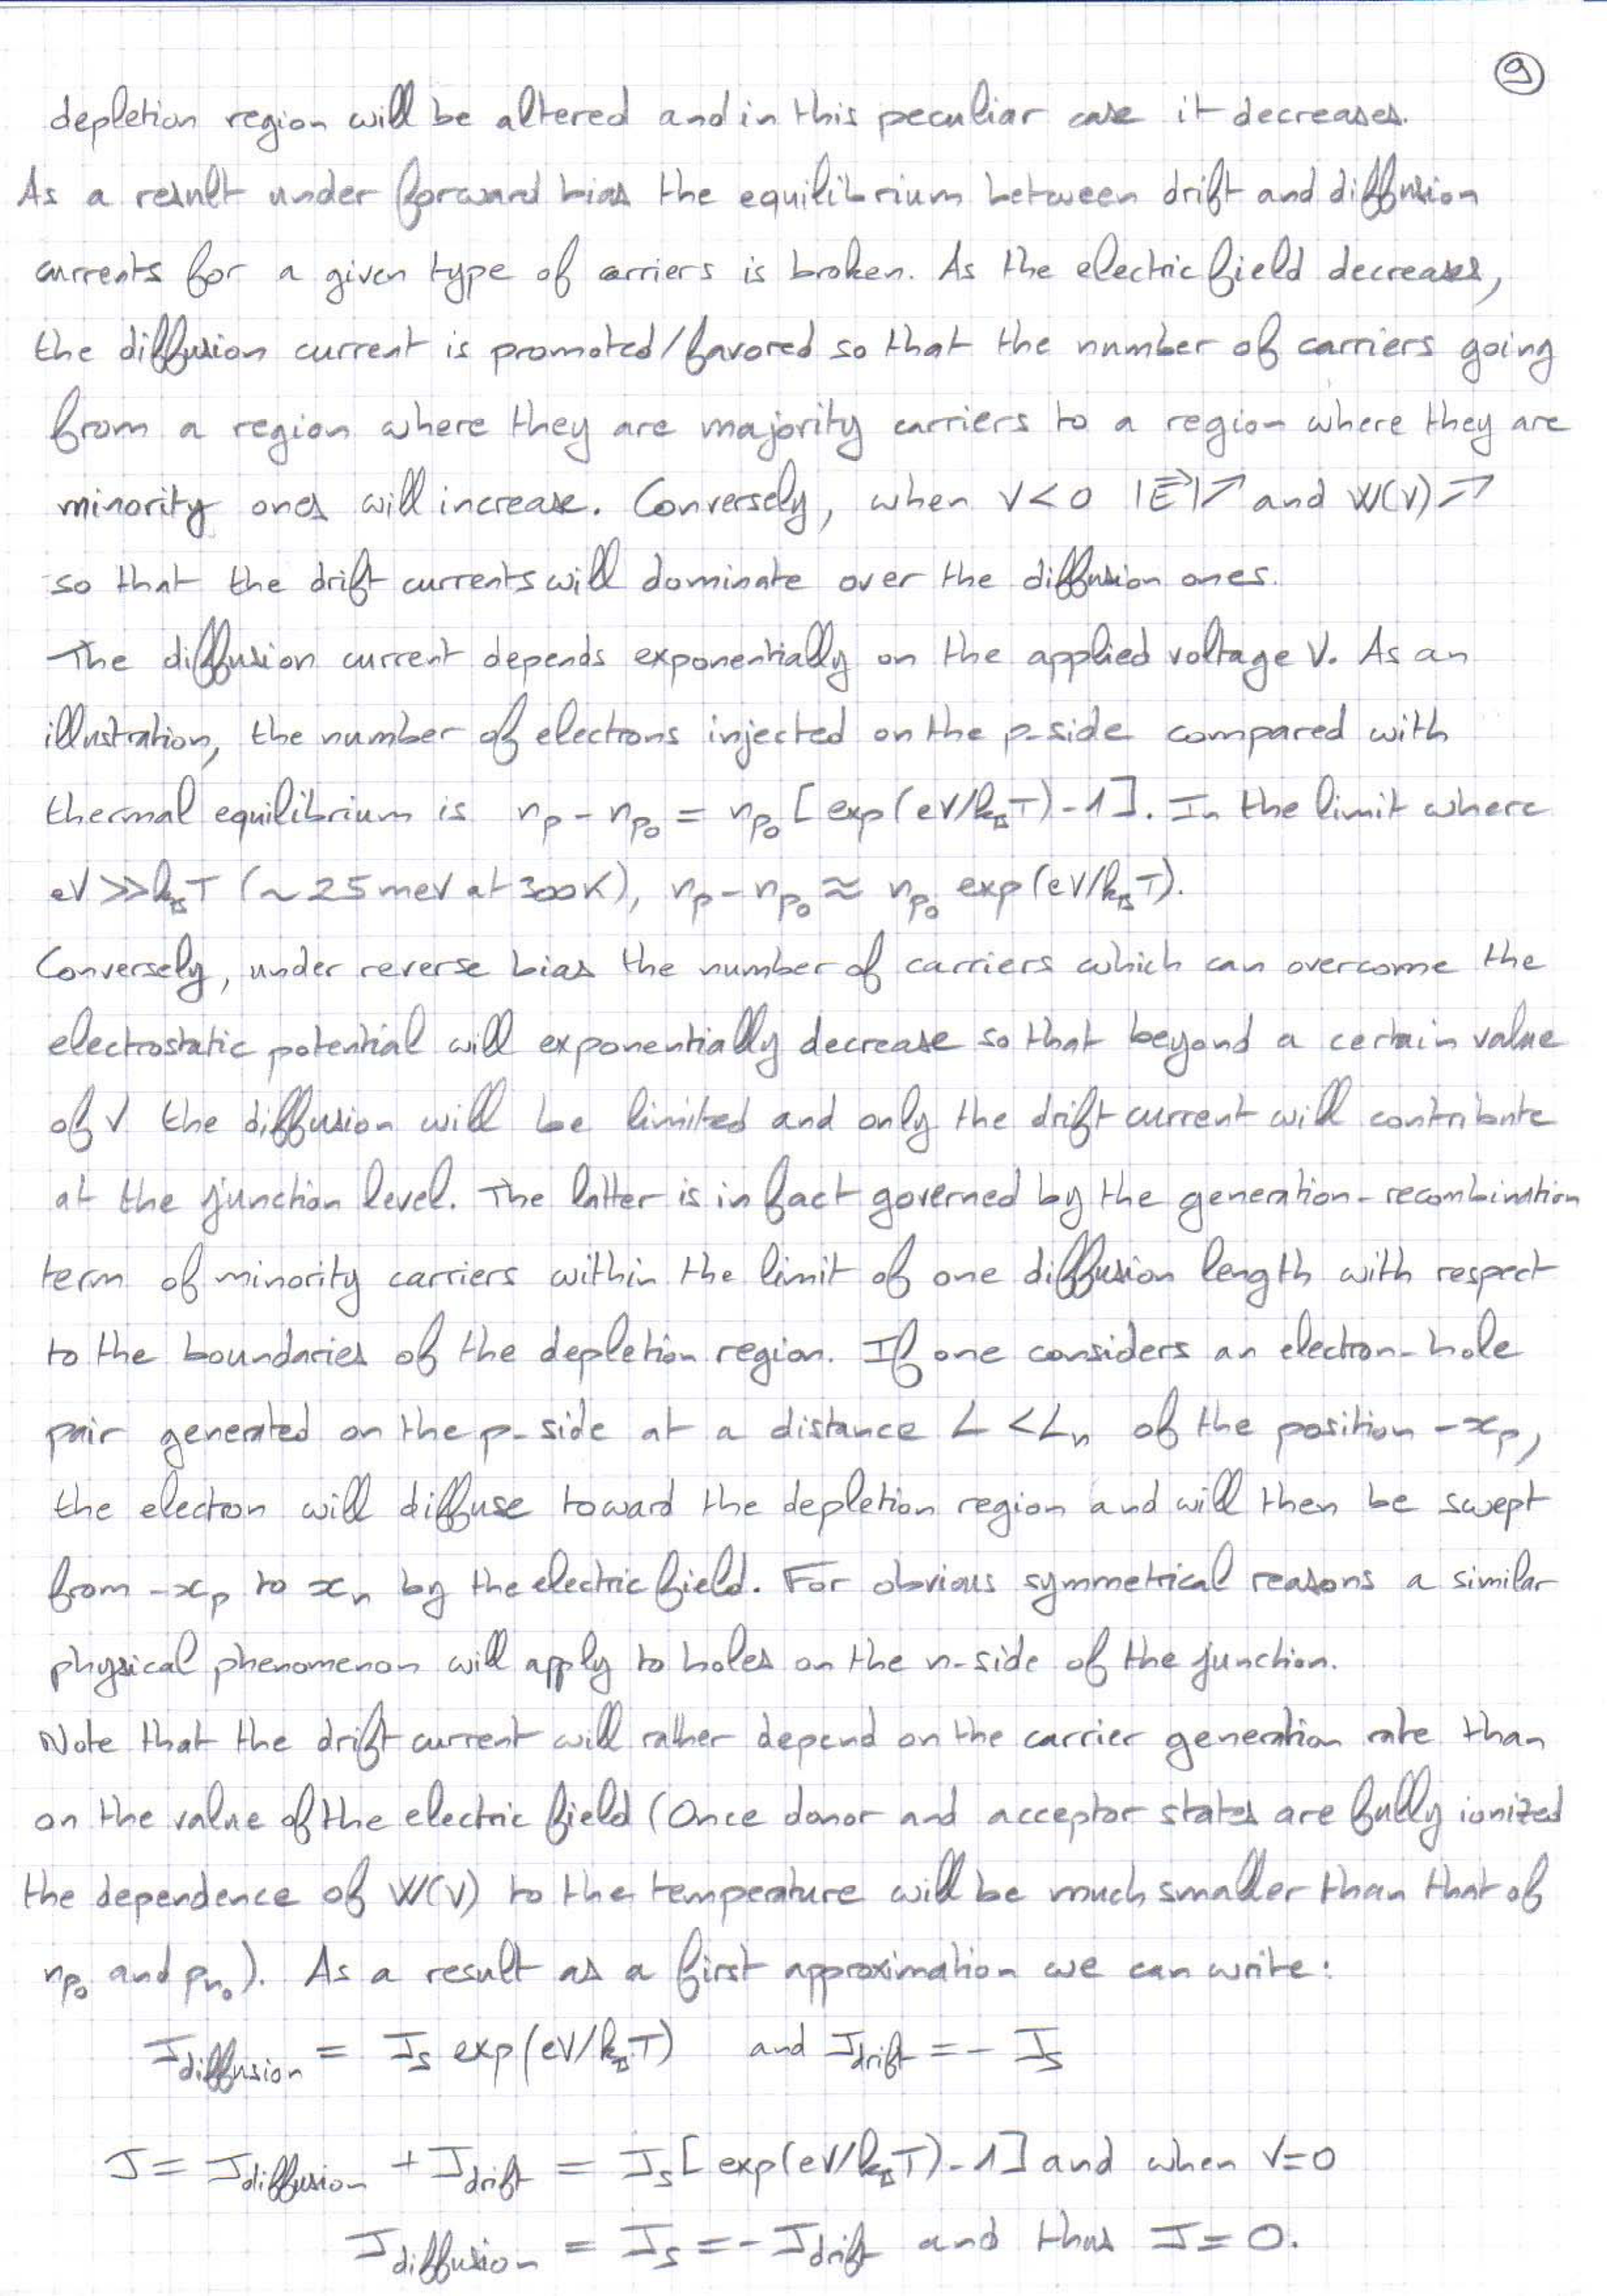 9
depletion region will be altered and in this peculiar case it decreases.
As a result under forward bias the equilibrium between drift and diffusion
currents for a given type of carriers is broken. As the electric field decreases,
the diffusion current is promoted/favored so that the number of carriers going
from a region where they are majority carriers to a region where they are
minority ones will increase. Conversely, when V<0 |E⃗|↗ and W(V)↗
so that the drift currents will dominate over the diffusion ones.
The diffusion current depends exponentially on the applied voltage V. As an
illustration, the number of electrons injected on the p-side compared with
thermal equilibrium is n_p - n_p₀ = n_p₀ [exp(eV/k_BT)-1]. In the limit where
eV >> k_BT (~25 meV at 300K), n_p - n_p₀ ≈ n_p₀ exp(eV/k_BT).
Conversely, under reverse bias the number of carriers which can overcome the
electrostatic potential will exponentially decrease so that beyond a certain value
of V the diffusion will be limited and only the drift current will contribute
at the junction level. The latter is in fact governed by the generation-recombination
term of minority carriers within the limit of one diffusion length with respect
to the boundaries of the depletion region. If one considers an electron-hole
pair generated on the p-side at a distance L < L_n of the position -x_p,
the electron will diffuse toward the depletion region and will then be swept
from -x_p to x_n by the electric field. For obvious symmetrical reasons a similar
physical phenomenon will apply to holes on the n-side of the junction.
Note that the drift current will rather depend on the carrier generation rate than
on the value of the electric field (Once donor and acceptor states are fully ionized
the dependence of W(V) to the temperature will be much smaller than that of
n_p₀ and p_n₀). As a result as a first approximation we can write:
J_diffusion = J_s exp(eV/k_BT) and J_drift = - J_s
J = J_diffusion + J_drift = J_s [exp(eV/k_BT)-1] and when V=0
J_diffusion = J_s = - J_drift and thus J=0.